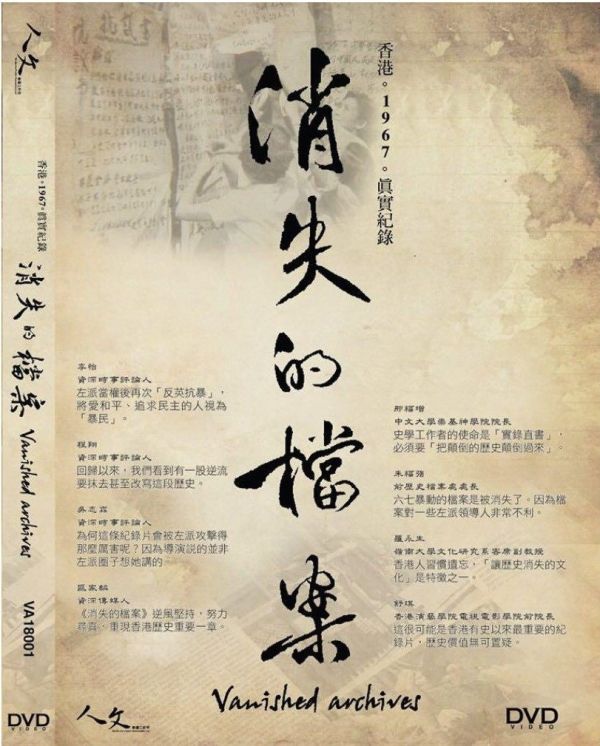 人文
香港。1967。真實紀錄
消失的檔案 Vanished archives
VA18001
DVD
VIDEO
香港。1967。真實紀錄
消失的檔案
李怡
資深時事評論人
左派當權後再次「反英抗暴」,
將愛和平、追求民主的人視為
「暴民」。
程翔
資深時事評論人
回歸以來,我們看到有一股逆流
要抹去甚至改寫這段歷史。
吳志森
資深時事評論人
為何這條紀錄片會被左派攻擊得
那麼厲害呢?因為導演説的並非
左派圈子想她講的。
區家麟
資深傳媒人
《消失的檔案》逆風堅持,努力
尋真,重現香港歷史重要一章。
邢福增
中文大學崇基神學院院長
史學工作者的使命是「實錄直書」,
必須要「把顛倒的歷史顛倒過來」。
朱福強
前歷史檔案處處長
六七暴動的檔案是被消失了。因為檔
案對一些左派領導人非常不利。
羅永生
嶺南大學文化研究系客席副教授
香港人習慣遺忘,「讓歷史消失的文
化」是特徵之一。
舒琪
香港演藝學院電視電影學院前院長
這很可能是香港有史以來最重要的紀
錄片,歷史價值無可置疑。
Vanished archives
人文
DVD
VIDEO